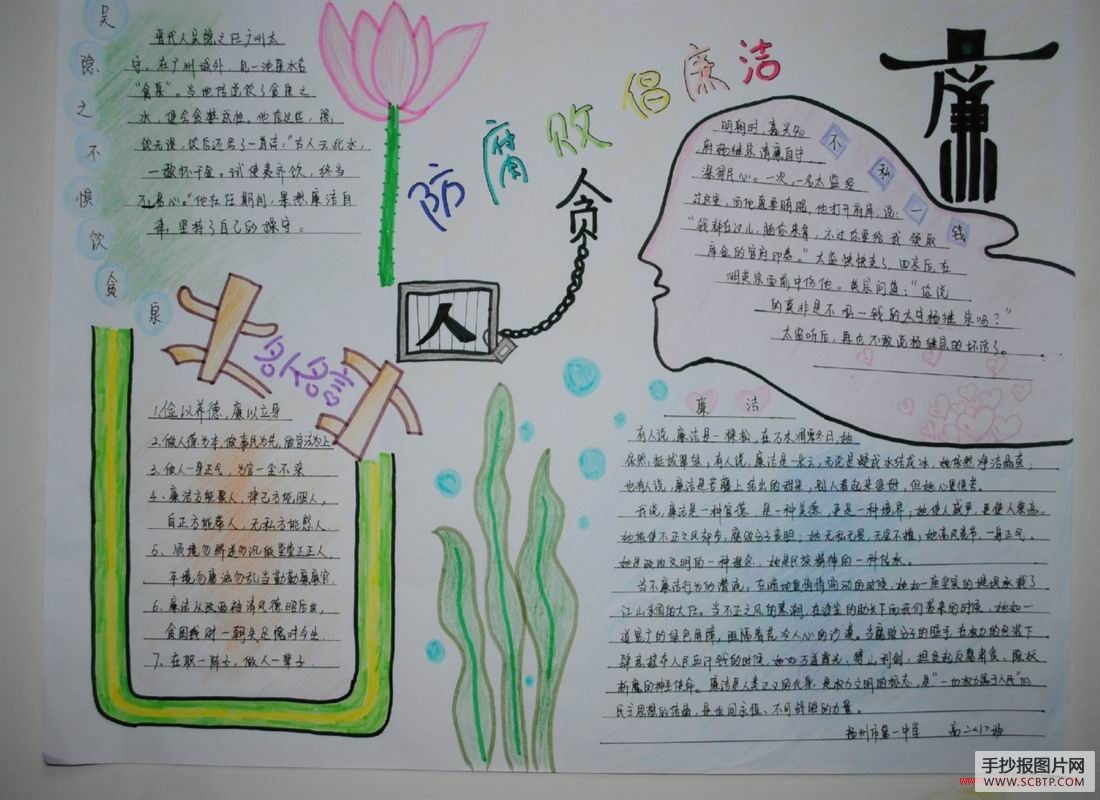 吴隐之不惧饮贪泉
晋代人吴隐之任广州太
守,在广州城外,见一池泉水名
"贪泉"。当地传说饮了贪泉之
水,便会贪婪成性。他
饮后还写了一首诗:"古人云此水,
一歃怀千金。试使夷齐饮,终当
不易心。"他在任期间,果然廉洁自
律,坚持了自己的操守。
防腐败倡廉洁
贪
人
廉
不私一钱
明朝时,嘉兴知
府杨继宗清廉自守
深得民心。一次,一名太监经
过这里,向他索要贿赂,他打开府库,说:
"钱都在这儿,随你来拿,不过你要给我领取
库金的官府印卷。"太监怏怏走了,回京后,在
明英宗面前中伤他。英宗问道:"你说
的莫非是不私一钱的太守杨继宗吗?"
太监听后,再也不敢说杨继宗的坏话了。
名人名言
1.俭以养德,廉以立身
2.做人德为本,做事民为先,做官法为上
3.做人一身正气,为官一尘不染
4、廉洁方能聚人,律己方能服人,
自正方能带人,无私方能感人
5、顺境勿醉逆勿沉做堂堂正正人,
平境勿庸法勿乱当勤勤廉廉官
6、廉洁从政两袖清风德昭后世,
贪图钱财一朝失足愧对今生
7、在职一阵子,做人一辈子
廉 洁
有人说,廉洁是一棵松,在万木凋零冬日,她
依然挺拔翠绿;有人说,廉洁是一朵云,无论是凝或水结成冰,她依然净洁
也有人说,廉洁是苦藤上结出的甜果,别人看起来很甜,但她心里很苦。
我说,廉洁是一种官德,是一种美德,更是一种境界;她使人威严,更使人崇高。
她能使不正之风却步,腐败分子丧胆;她无私无畏,无坚不摧;她高风亮节,一身正气。
她是政治文明的一种理念,她是民族精神的一种传承。
当不廉洁行为的潜流,在暗地里悄悄涌动的时候,她如一座坚实的堤坝承载了
江山永固的大任。当不正之风的黑潮,在沙尘的助长下向我们袭来的时候,她如一
道宽广的绿色屏障,阻隔着荒冷人心的沙漠。当腐败分子的贼手,在权力的包装下
肆意掠夺人民血汗钱的时候,她如万道霞光、劈山利剑,担负起反腐肃贪、除妖
斩魔的神圣使命。廉洁是人类正义的化身,是权力文明的标志,是"一切权力属于人民"的
民主思想的结晶,是世间永恒、不可战胜的力量。
扬州市第一中学 高二〈1〉班
手抄报图片网
WWW.SCBTP.COM